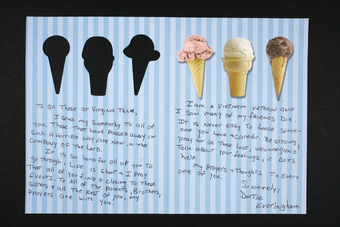 To All Those at Virginia Tech,
I send my sympathy to all of
you. Those that have passed away in
such a horrible way are now in the
company of the Lord.
It is so hard for all of you to
go through. Life is short & I pray
that all of you find a closing to these
events. To all of the parents, Brothers,
Sisters & all the Rest of you, my
prayers are with you.
I am a Vietnam veteran and
I saw many of my friends die.
It is never easy to loose some-
one you love & care for. Be strong,
pray for all those lost, wounded and
talk about your feelings, it does
help.
My prayers & thoughts to every
one of you.
Sincerely,
Dottie
Everingham